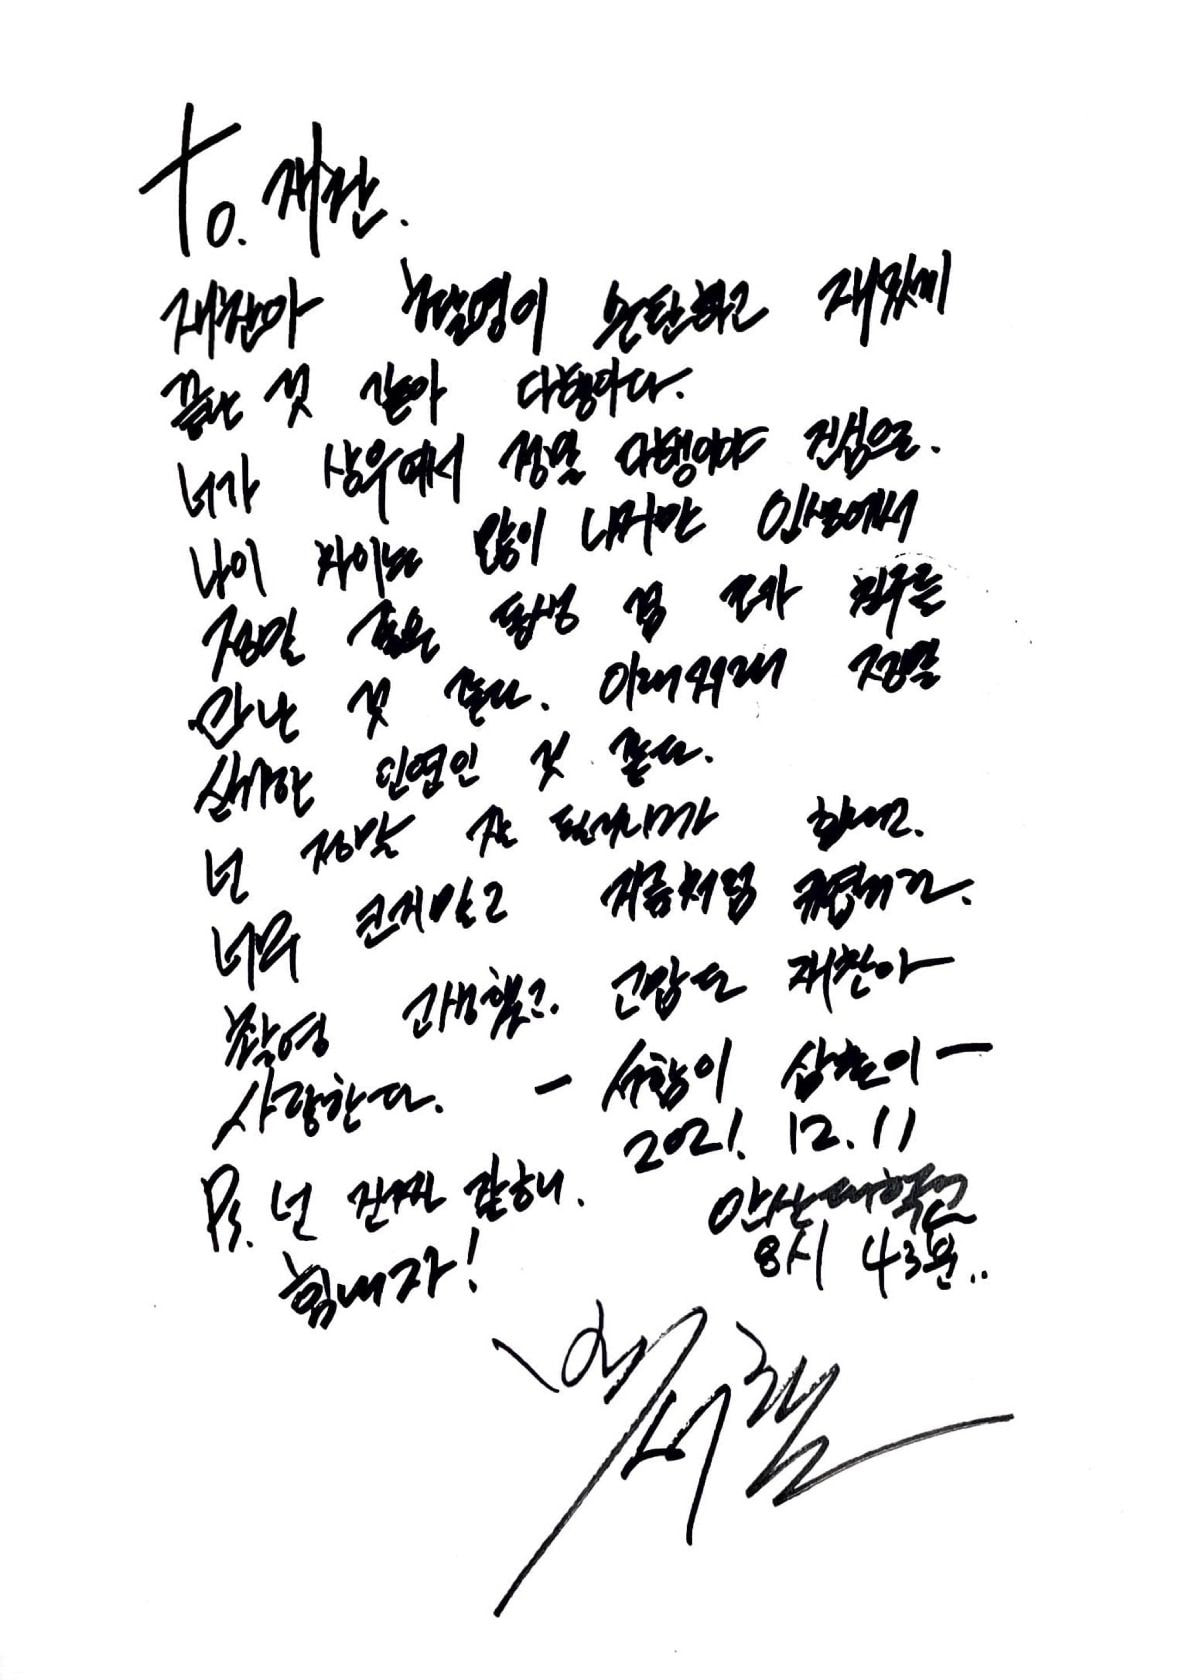 To. 재찬.
재찬아 촬영이 순탄하고 재밌게
끝난 것 같아 다행이다.
너가 상우여서 정말 다행이야 진심으로.
나이 차이는 많이 나지만 인생에서
정말 좋은 동생 겸 친구를
만난 것 같다. 이래저래 정말
신기한 인연인 것 같다.
넌 정말 잘 될거니까 힘내고.
너무 크지말고 지금처럼 귀엽거라.
촬영 고생했고. 고맙다 재찬아
사랑한다. - 서함이 삼촌이 -
2021. 12. 11
Ps. 넌 진짜 잘해. 안산대학교
힘내자! 8시 43분..
박서함